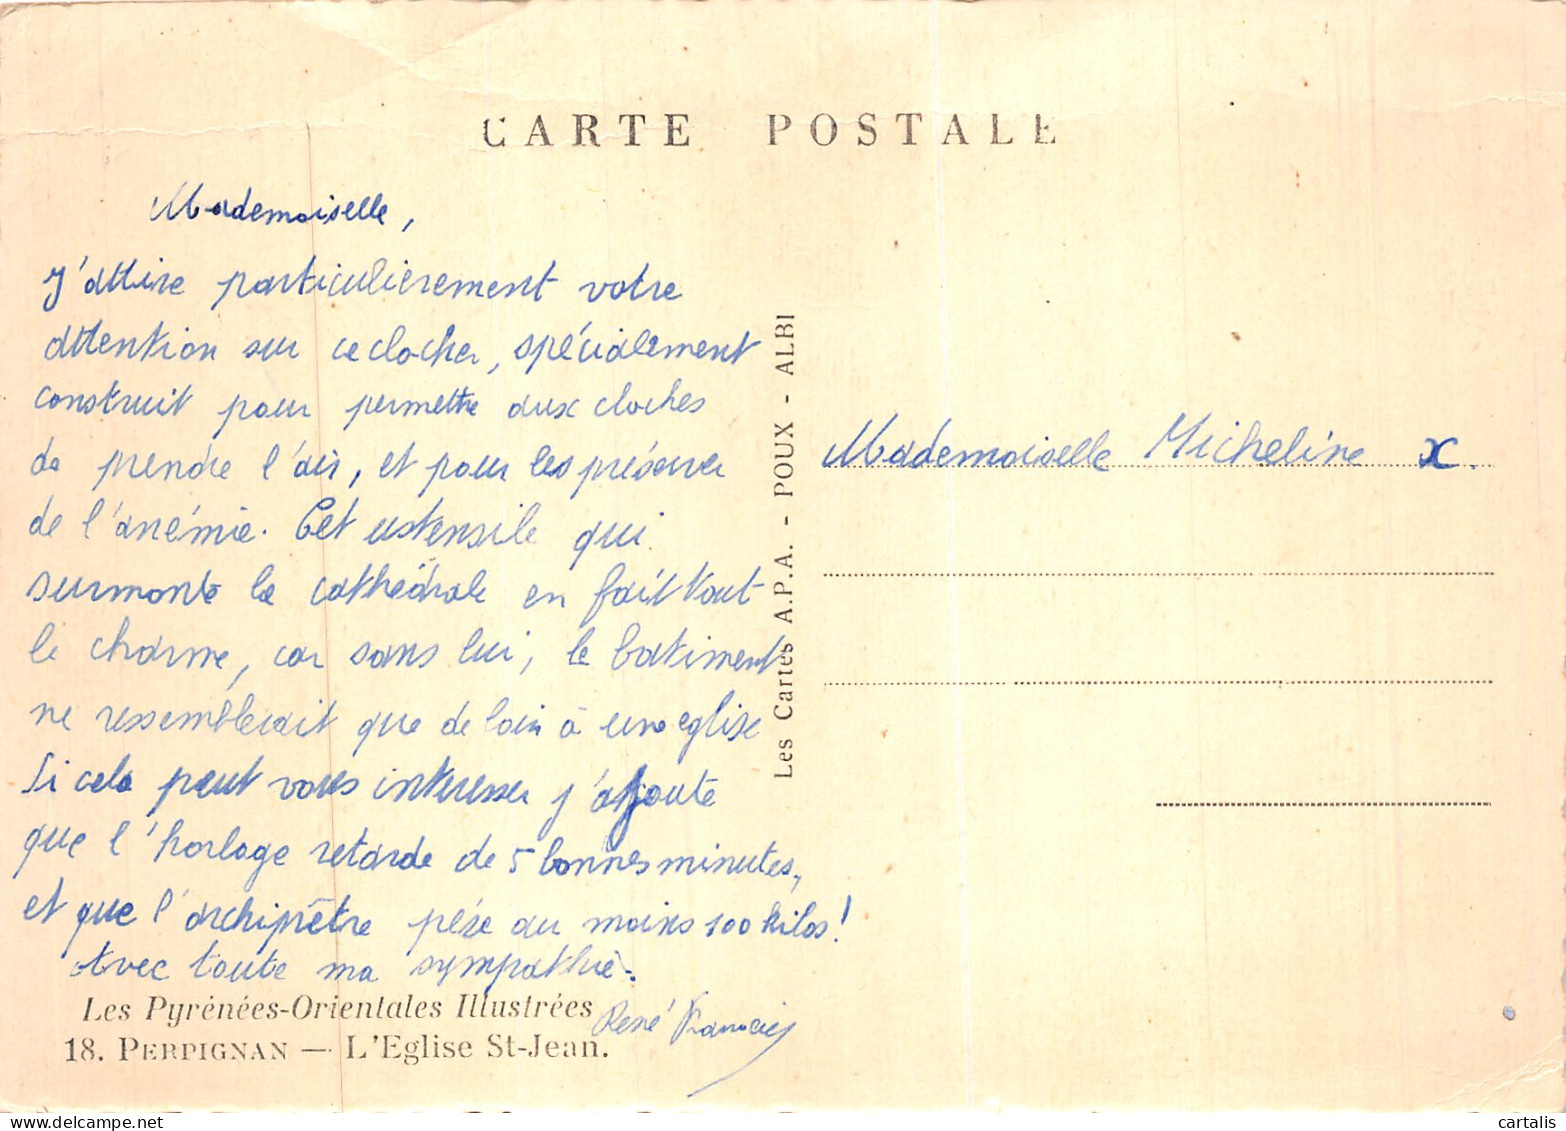 CARTE POSTALE
Mademoiselle,
J'attire particulièrement votre
attention sur ce clocher, spécialement
construit pour permettre aux cloches
de prendre l'air, et pour les préserver
de l'anémie. Cet ustensile qui
surmonte la cathédrale en fait tout
le charme, car sans lui, le batiment
ne ressemblerait que de loin à une eglise
Si cela peut vous intéresser j'ajoute
que l'horloge retarde de 5 bonnes minutes,
et que l'archiprêtre pèse au moins 100 kilos!
Avec toute ma sympathie.
René
Les Pyrénées-Orientales Illustrées
18. PERPIGNAN — L'Eglise St-Jean.
Les Cartes A.P.A. - POUX - ALBI
Mademoiselle Micheline X.
cartalis